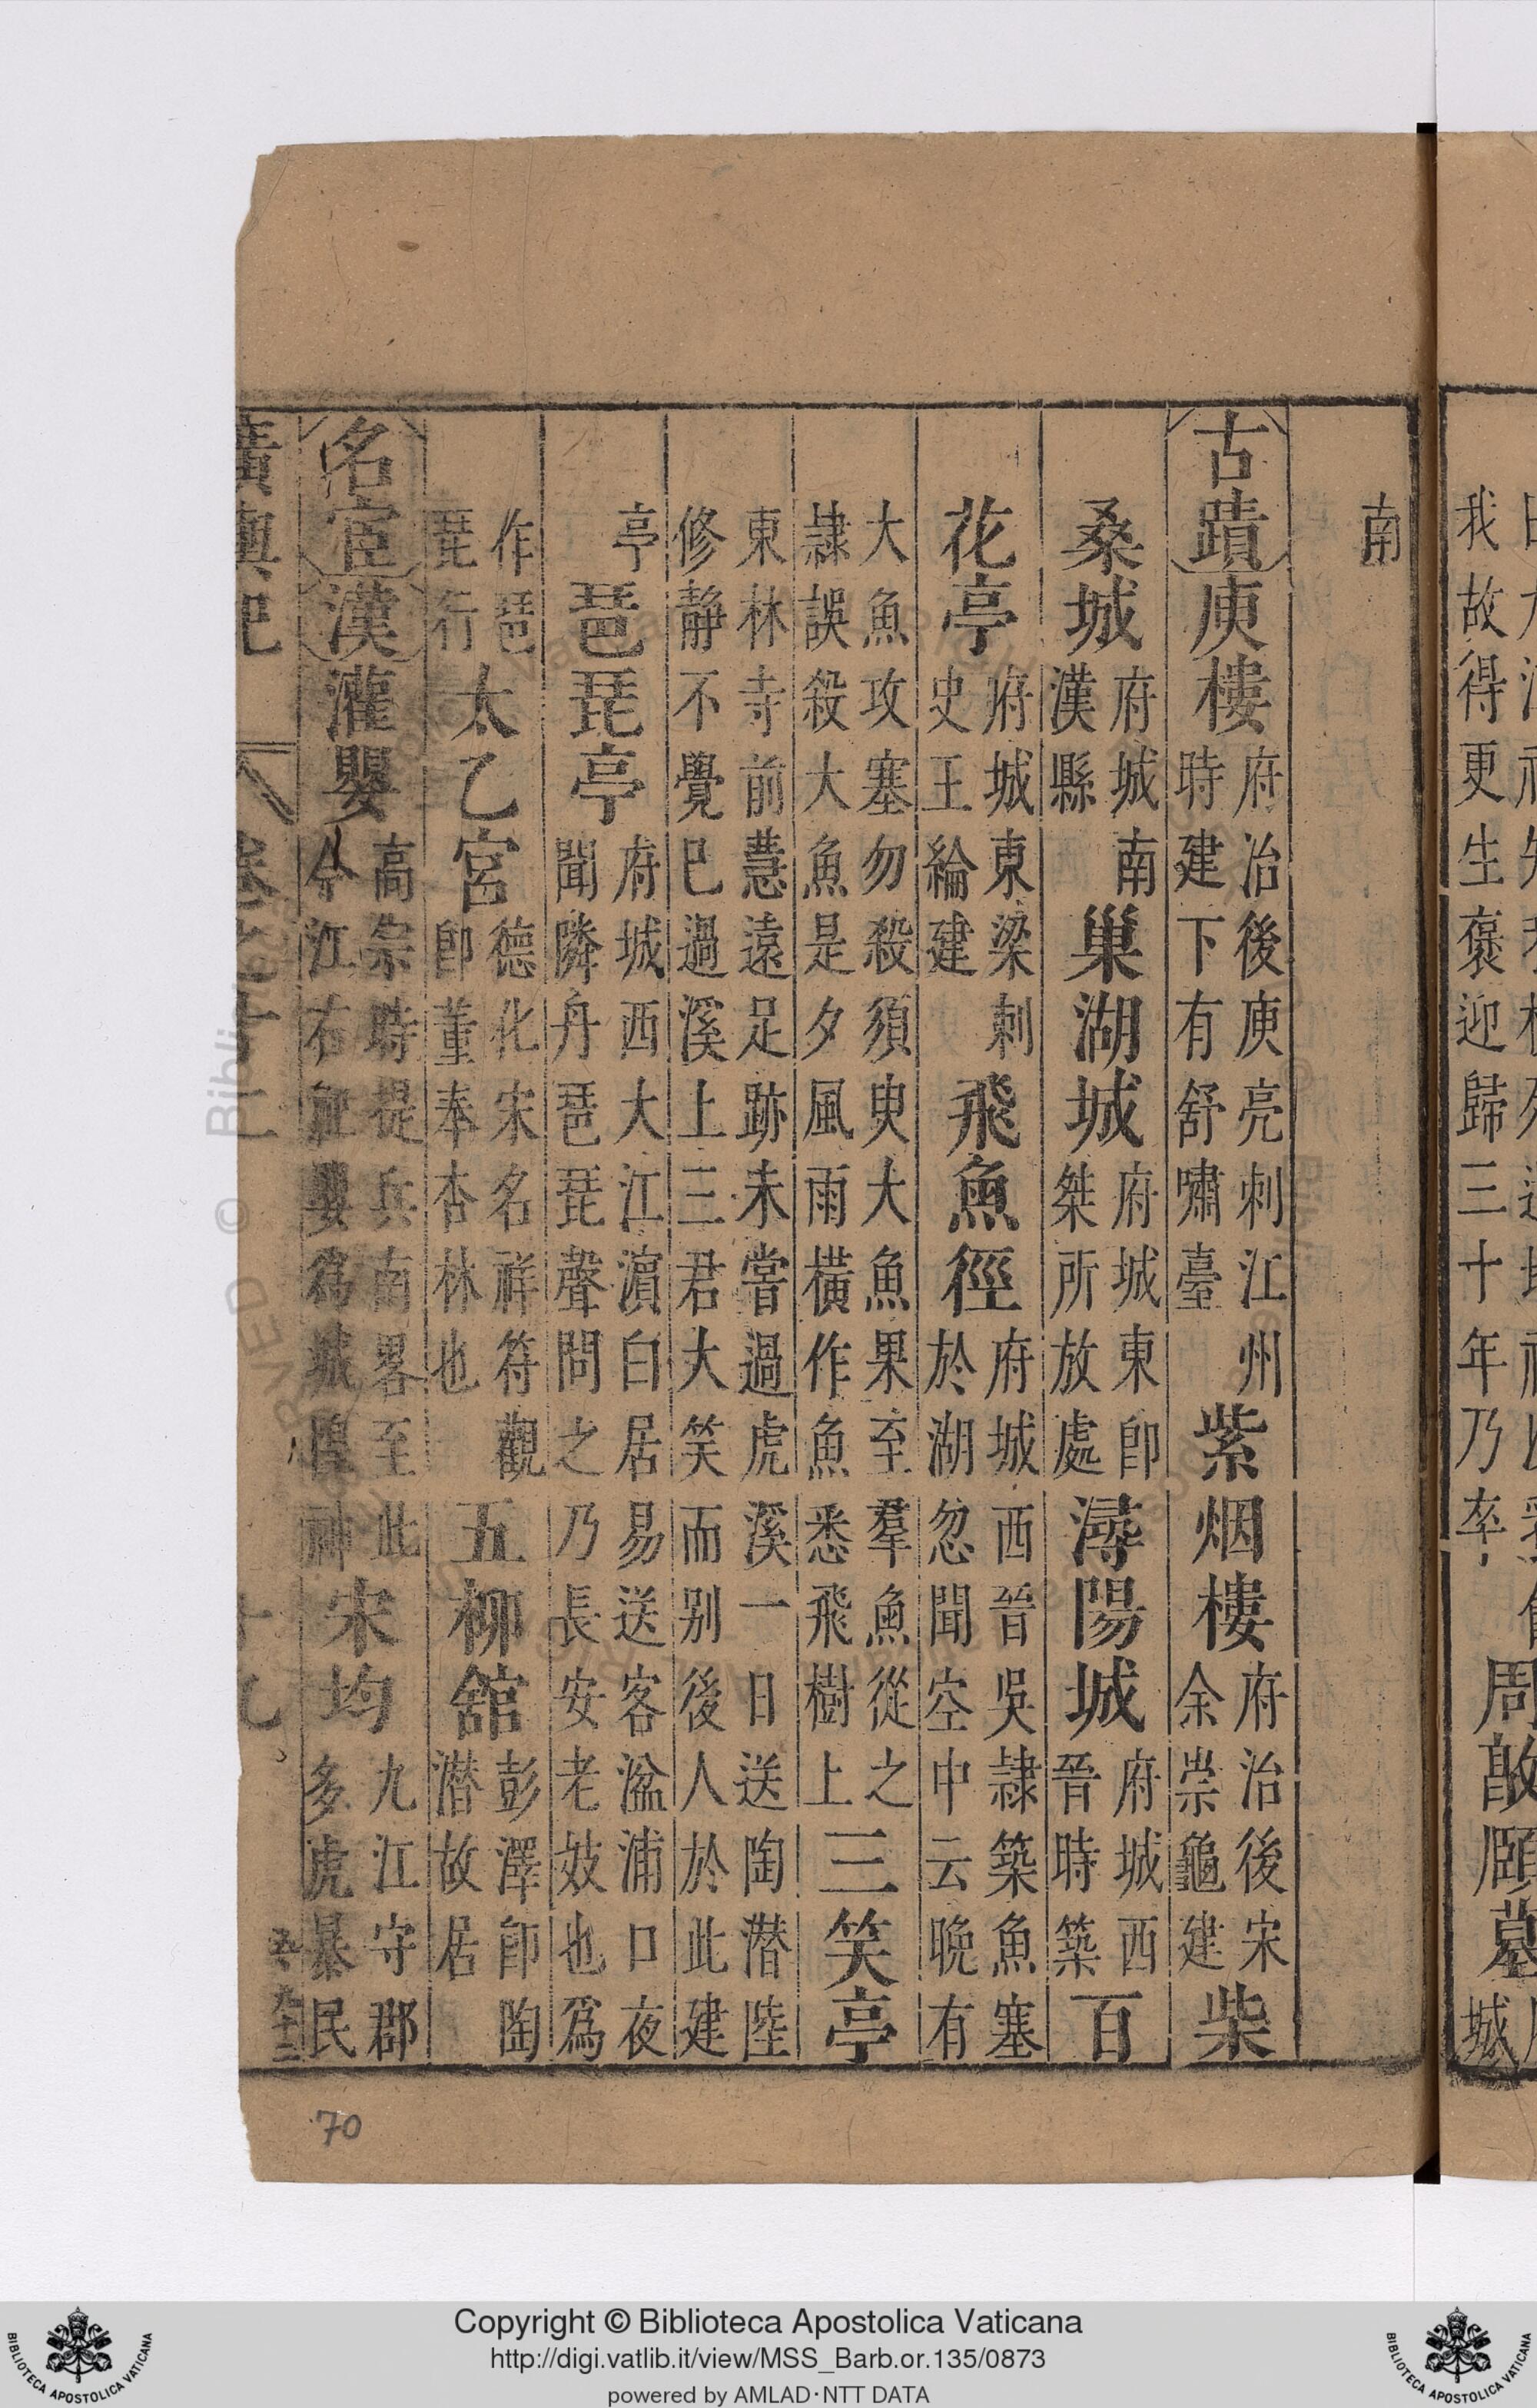 我故得更生褒迎歸三十年乃卒
周敦頤墓
城
南
古蹟庾樓府治後庾亮刺江州時建下有舒嘯臺紫烟樓府治後宋余崇龜建柴
桑城府城南漢縣巢湖城府城東即桀所放處潯陽城府城西晉時築百
花亭府城東梁刺史王綸建飛魚徑府城西晉吳隷築魚塞於湖忽聞空中云晚有
大魚攻塞勿殺須臾大魚果至羣魚從之隷誤殺大魚是夕風雨橫作魚悉飛樹上三笑亭
東林寺前慧遠足跡未嘗過虎溪一日送陶潜陸修静不覺巳過溪上三君大笑而别後人於此建
亭琶琵亭府城西大江濵白居易送客湓浦口夜聞隣舟琶琵聲問之乃長安老妓也為
作琶琵行太乙宮德化宋名祥符觀即董奉杏林也五柳舘彭澤即陶潜故居
名宦漢灌嬰高宗時提兵南畧至此今江右祀嬰為城隍神宋均九江守郡多虎暴民
廣輿記 卷之十二 十九
70
Copyright © Biblioteca Apostolica Vaticana
http://digi.vatlib.it/view/MSS_Barb.or.135/0873
powered by AMLAD·NTT DATA
BIBLIOTECA APOSTOLICA VATICANA
BIBLIOTECA APOSTOLICA VATICANA